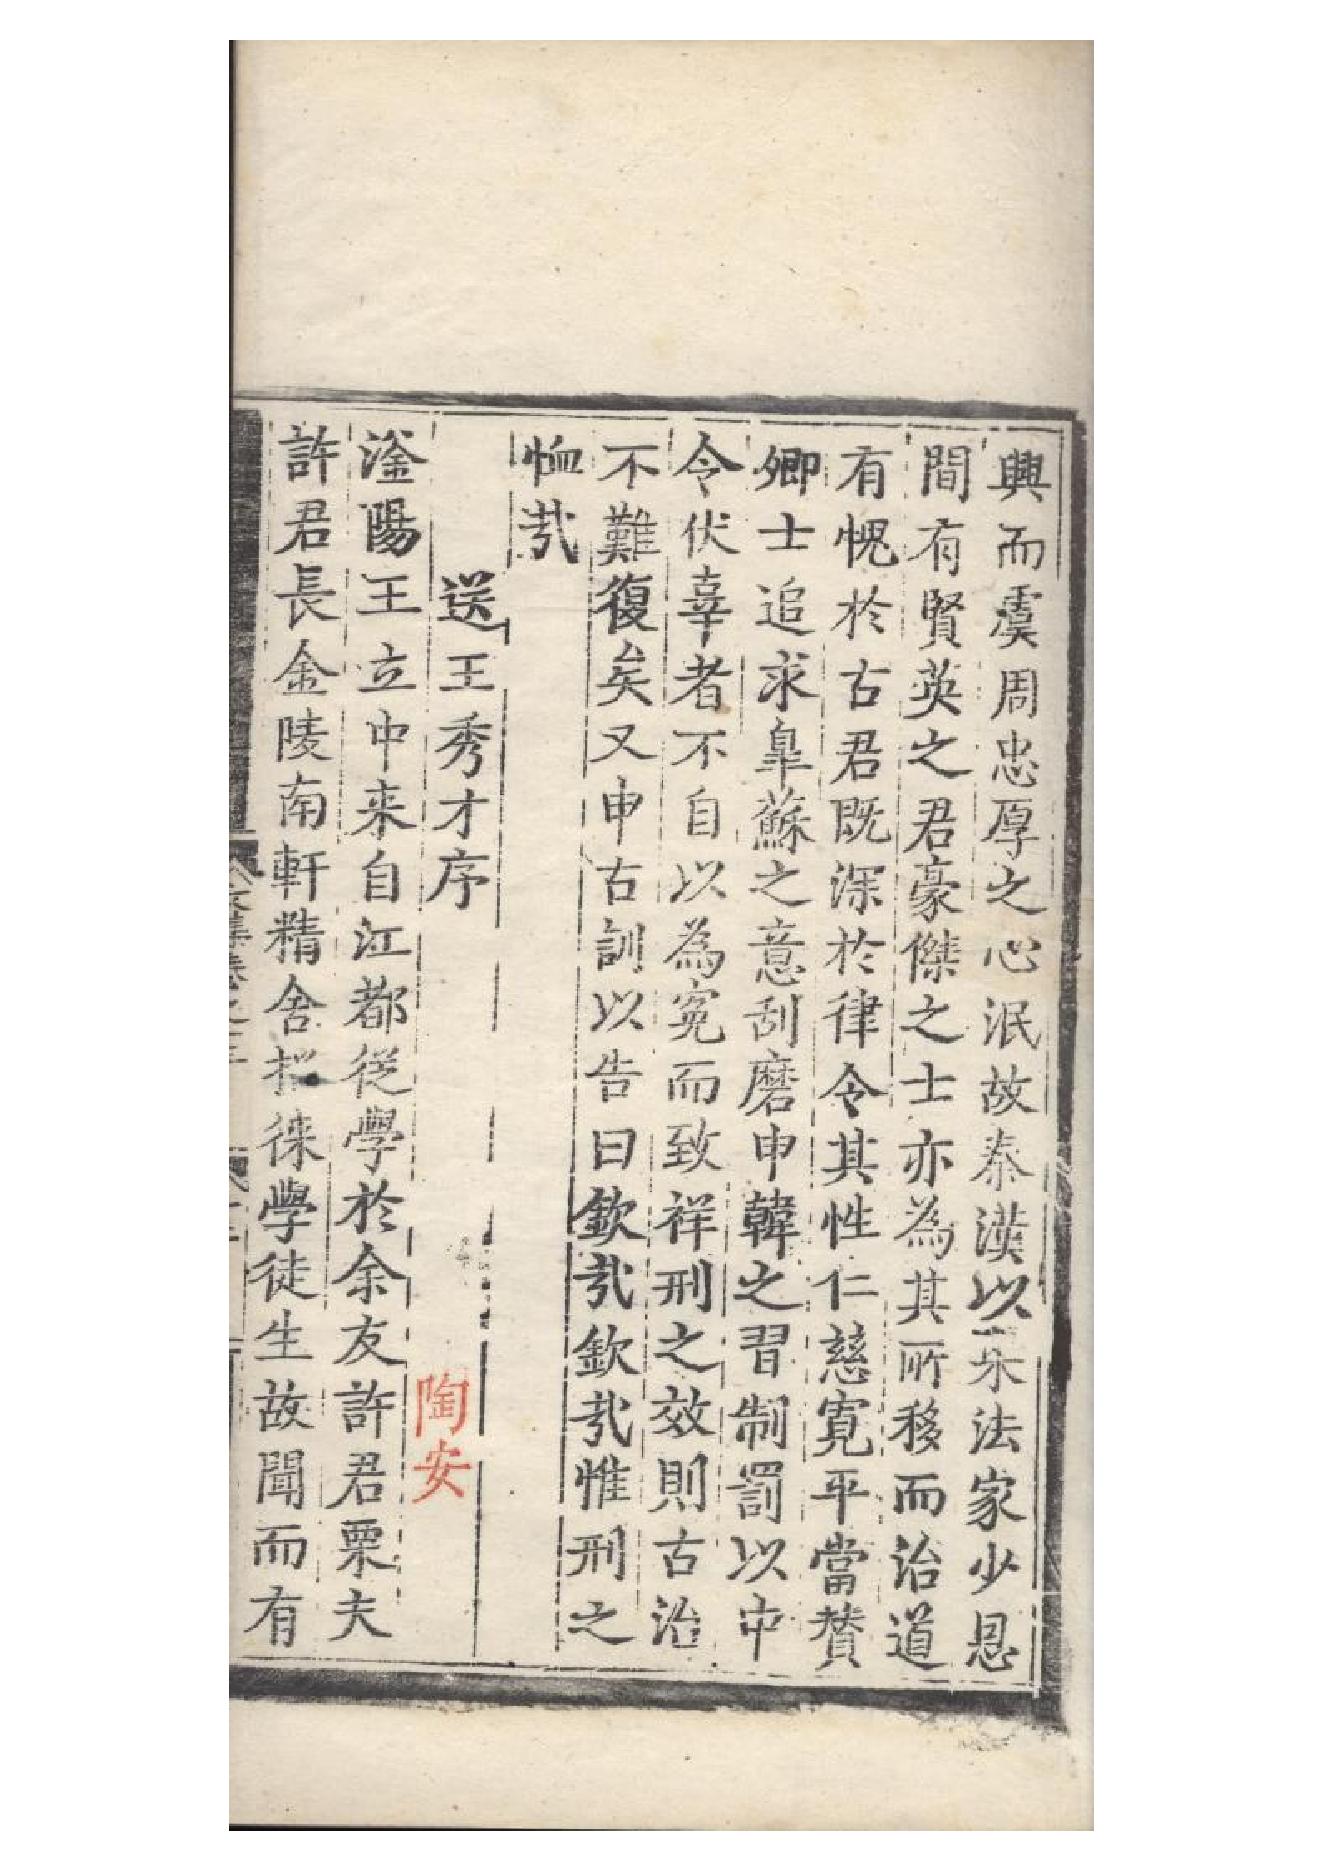 興而虞周忠厚之心泯故秦漢以来法家少恩
間有賢英之君豪傑之士亦為其所移而治道
有愧於古君既深於律令其性仁慈寛平當賛
卿士追求臯蘇之意刮磨申韓之習制罰以中
令伏辜者不自以為寃而致祥刑之效則古治
不難復矣又申古訓以告曰欽哉欽哉惟刑之
恤哉
送王秀才序 陶安
滏陽王立中来自江都從學於余友許君栗夫
許君長金陵南軒精舍招徠學徒生故聞而有